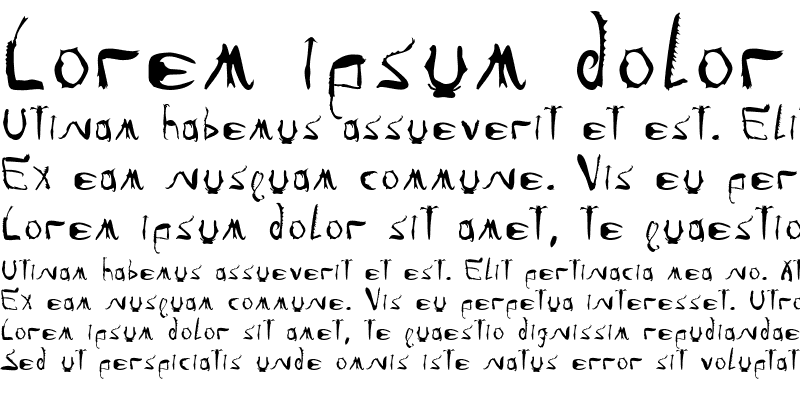 Lorem ipsum dolor
Utinam habemus assueverit et est. Elit
Ex eam nusquam commune. Vis eu per
Lorem ipsum dolor sit amet, te quaestio
Utinam habemus assueverit et est. Elit pertinacia mea no. At
Ex eam nusquam commune. Vis eu perpetua interesset. Utro
Lorem ipsum dolor sit amet, te quaestio dignissim repudiandae
Sed ut perspiciatis unde omnis iste natus error sit voluptat